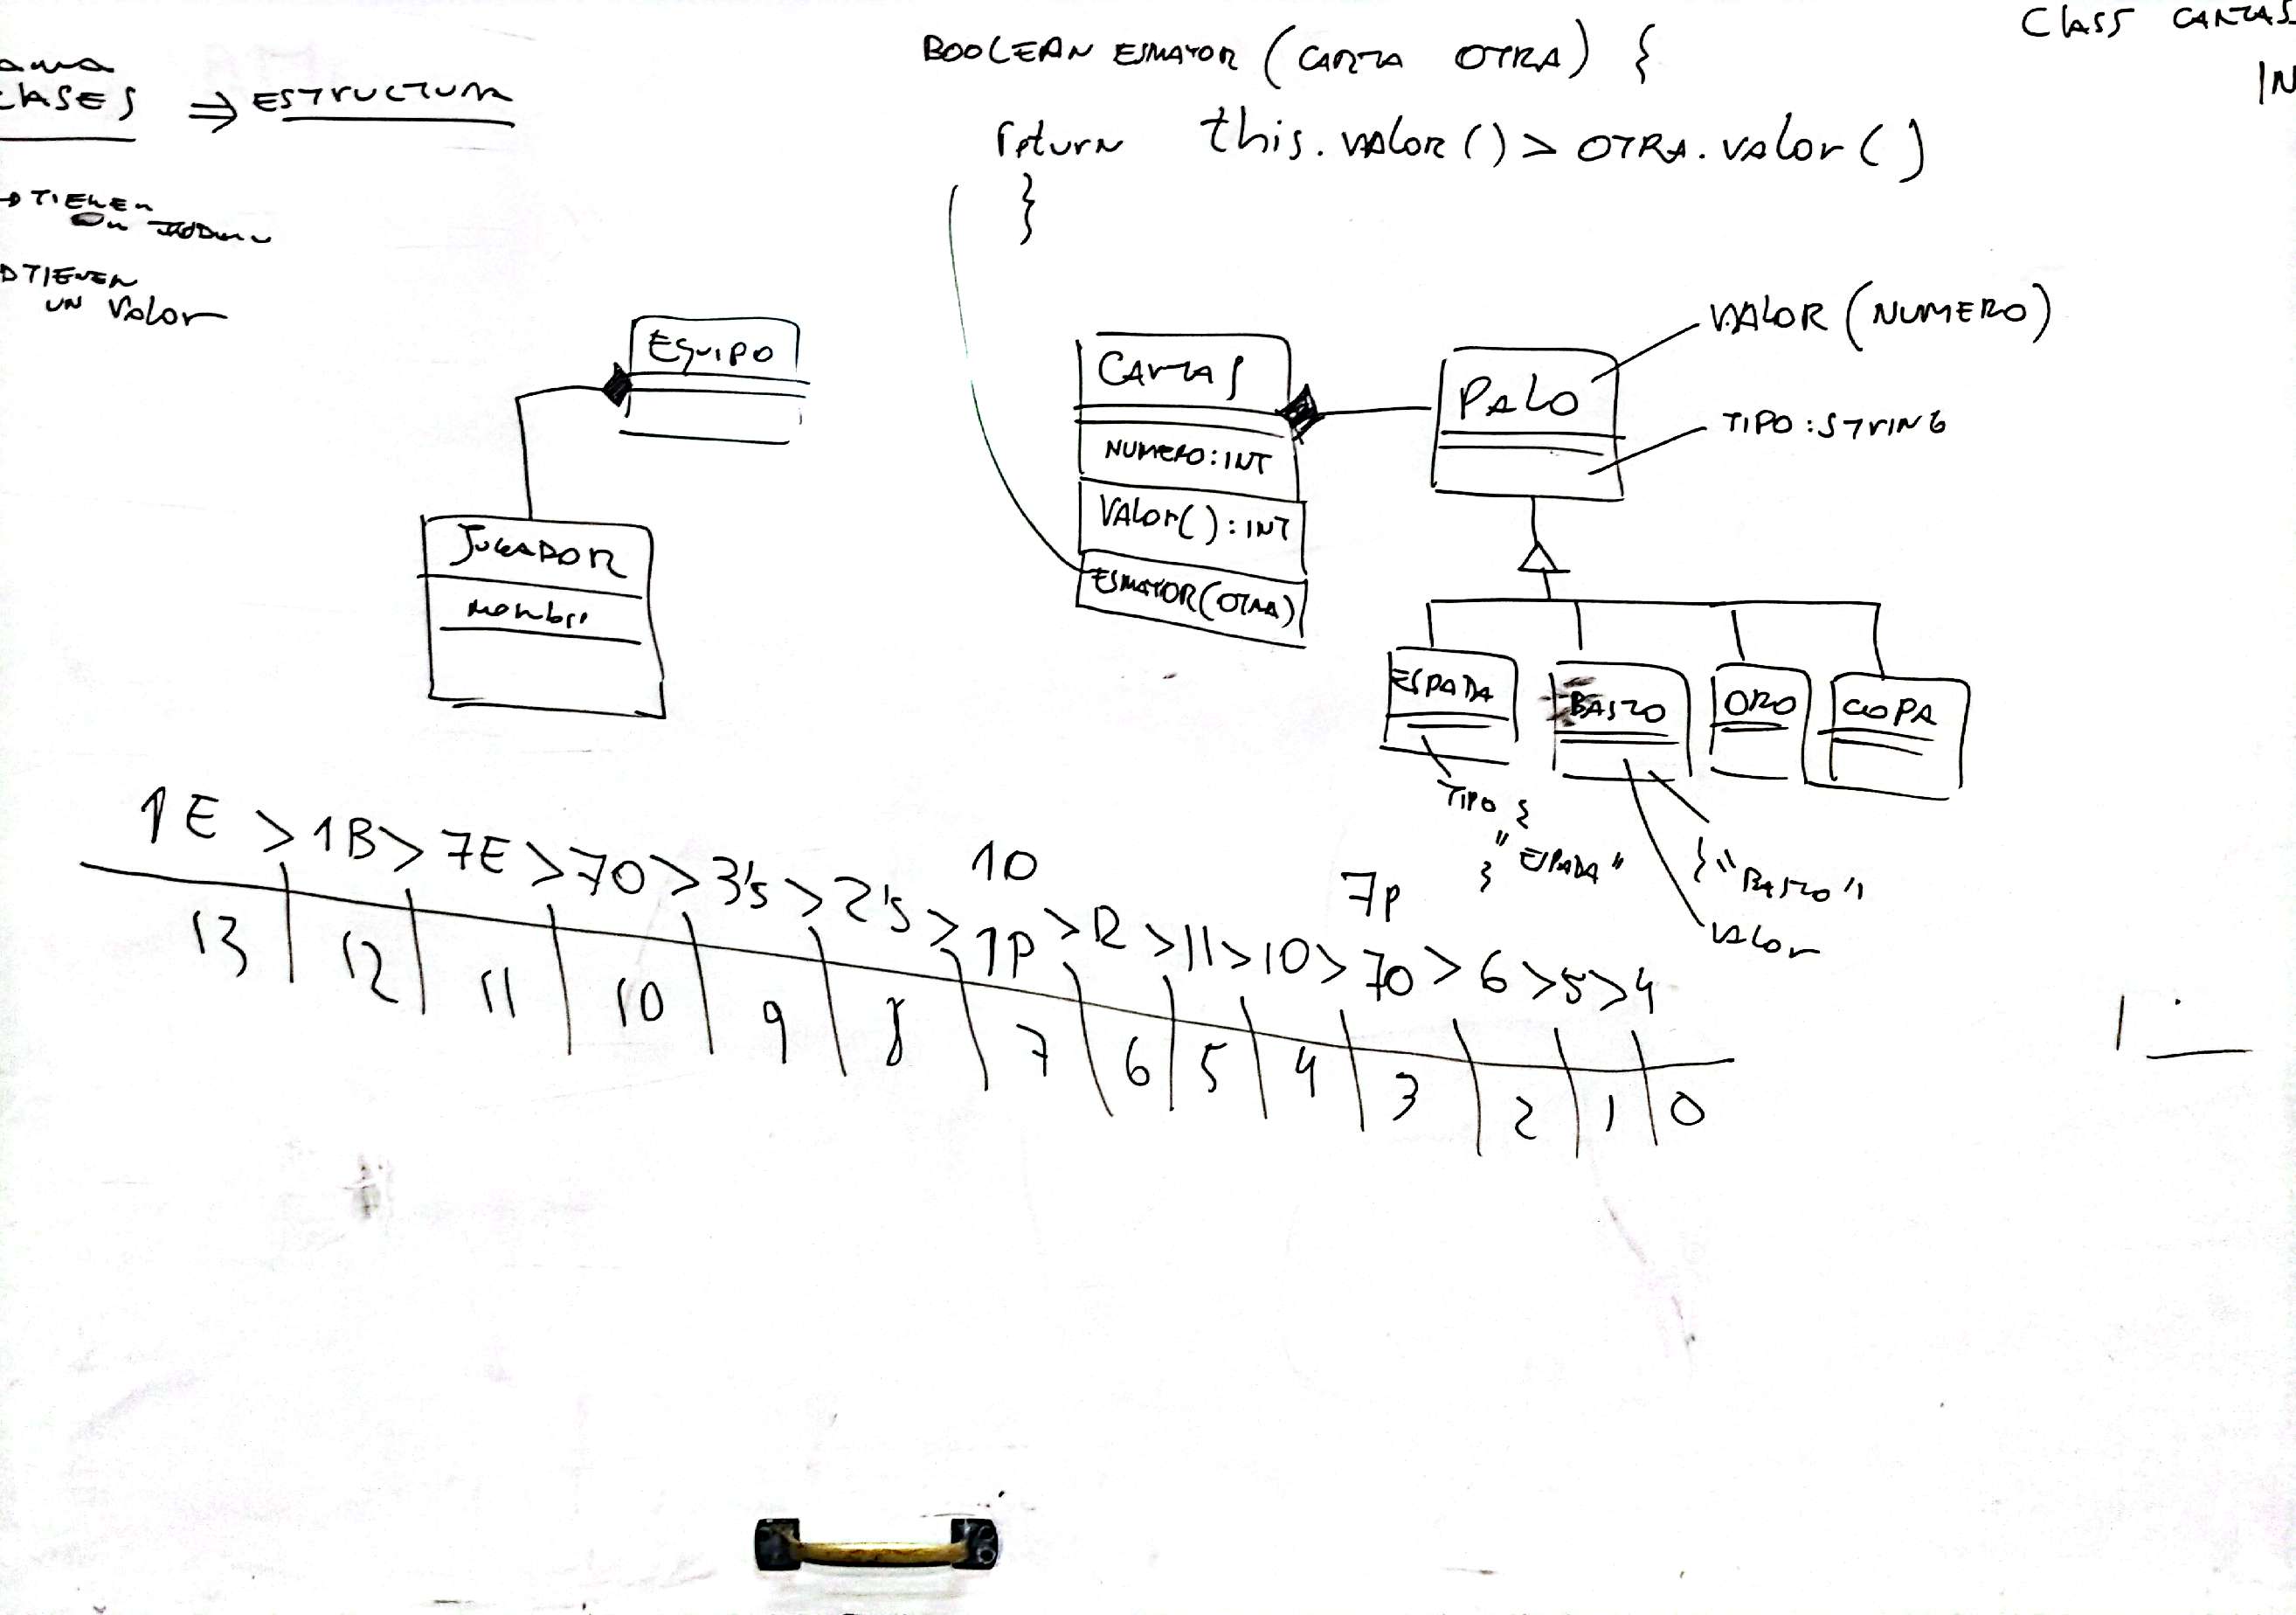 CLASES ⇒ ESTRUCTURA
→ TIENEN
TIENEN
UN Valor
BOOLEAN ESMAYOR (CARTA OTRA) {
return this.VALOR() > OTRA.valor()
}
CLASS CARTAS
IN
EQUIPO
JUGADOR
nombre
CARTAS
NUMERO:INT
VALOR():INT
ESMAYOR(OTRA)
PALO
VALOR (NUMERO)
TIPO:STRING
ESPADA
BASTO
ORO
COPA
TIPO {
"ESPADA"
}
} "BASTO"
VALOR
10
7P
1E > 1B > 7E > 7O > 3's > 2's > 1P > 12 > 11 > 10 > 7O > 6 > 5 > 4
13 12 11 10 9 8 7 6 5 4 3 2 1 0